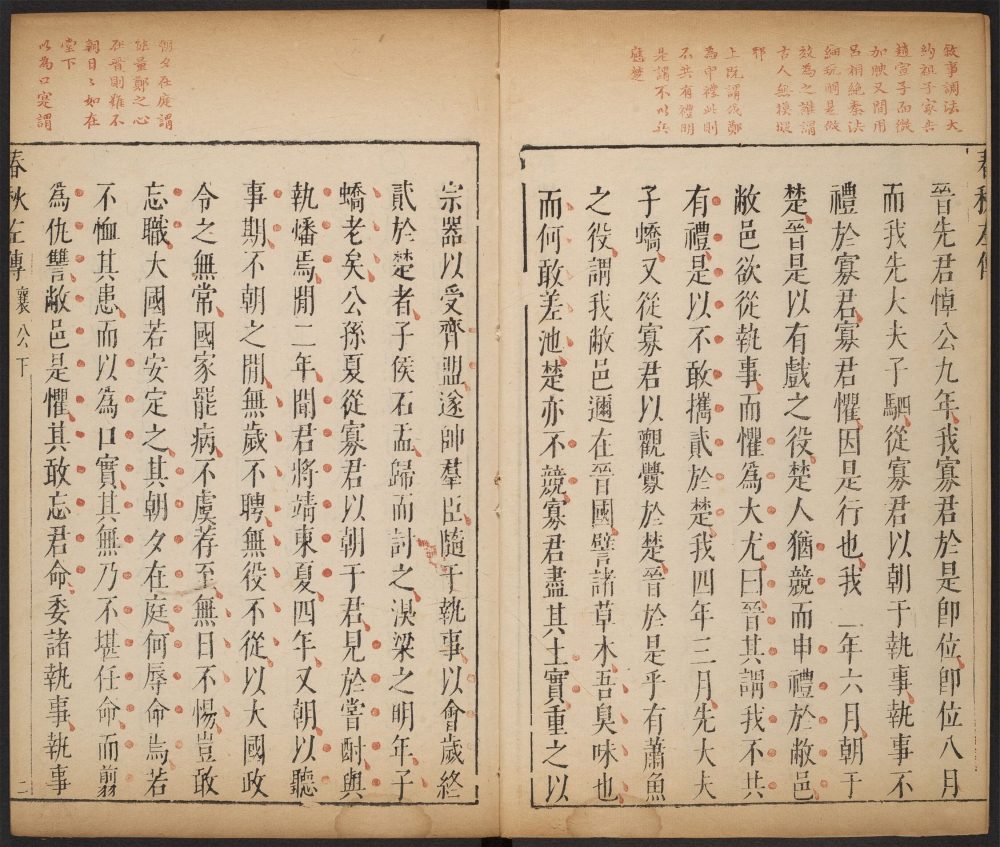 敘事調法大
約祖子家告
趙宣子而微
加映又間用
呂相絕秦法
細玩酮是傚
放為之誰謂
古人無摸擬
耶
上既謂我鄭
為申禮此則
不共有禮明
是謂不以兵
應楚
春秋左傳
晉先君悼公九年我寡君於是即位即位八月
而我先大夫子駟從寡君以朝于執事執事不
禮於寡君寡君懼因是行也我二年六月朝于
楚晉是以有戲之役楚人猶競而申禮於敝邑
敝邑欲從執事而懼為大尤曰晉其謂我不共
有禮是以不敢攜貳於楚我四年三月先大夫
子蟜又從寡君以觀釁於楚晉於是乎有蕭魚
之役謂我敝邑邇在晉國譬諸草木吾臭味也
而何敢差池楚亦不競寡君盡其土實重之以
朝夕在庭謂
能量鄭之心
在晉則雖不
朝日〻如在
堂下
以為口寔謂
宗器以受齊盟遂帥羣臣隨于執事以會歲終
貳於楚者子侯石盂歸而討之湨梁之明年子
蟜老矣公孫夏從寡君以朝于君見於嘗酎與
執燔焉閒二年聞君將靖東夏四年又朝以聽
事期不朝之閒無歲不聘無役不從以大國政
令之無常國家罷病不虞荐至無日不惕豈敢
忘職大國若安定之其朝夕在庭何辱命焉若
不恤其患而以為口實其無乃不堪任命而翦
為仇讐敝邑是懼其敢忘君命委諸執事執事
春秋左傳 襄公下 二